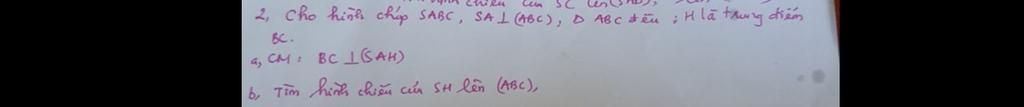 SC lên (SAB),
2, Cho hình chóp SABC, SA ⊥ (ABC), Δ ABC đều ; H là trung điểm
BC.
a, CM : BC ⊥ (SAH)
b, Tìm hình chiếu của SH lên (ABC),